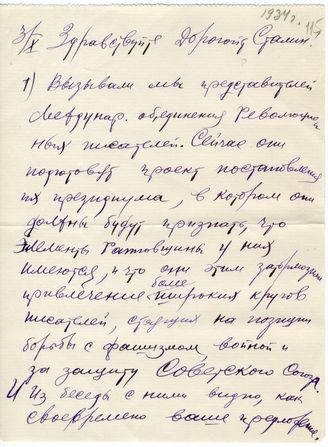 1934 г.
3/X Здравствуйте Дорогой Сталин.
1) Вызывали мы представителей
Междунар. объединения Революцион
ных писателей. Сейчас они
подготовят проект постановления
их президиума, в котором они
должны будут признать, что
элементы Рапповщины у них
имеются, и что они этим затормозили
более
привлечение широких кругов
писателей, стоящих на позиции
борьбы с фашизмом, войной и
за защиту Советского Союза.
И Из беседы с ними видно, как
своевремено ваше предложение